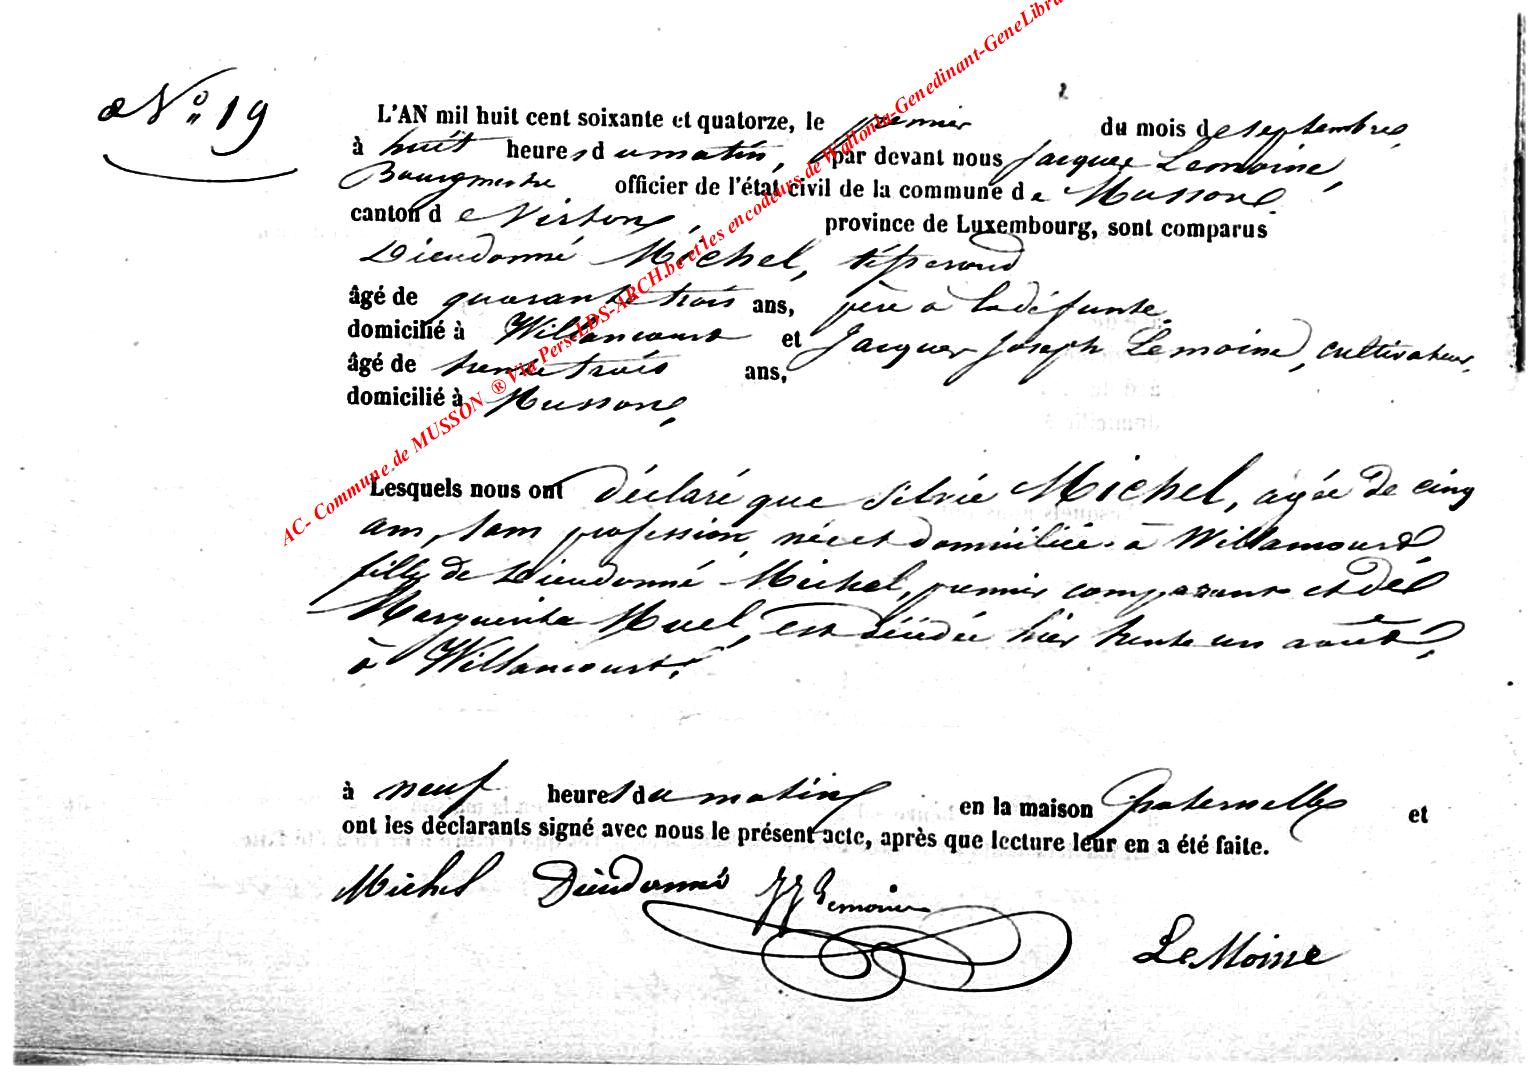 N° 19
L'AN mil huit cent soixante et quatorze, le premier du mois de septembre,
à huit heures du matin, par devant nous Jacques Lemoine,
Bourgmestre officier de l'état civil de la commune de Musson,
canton de Virton, province de Luxembourg, sont comparus
Dieudonné Michel,
âgé de quarante trois ans, père à la défunte
domicilié à Willancourt et Jacques Joseph Lemoine, cultivateur,
âgé de trente trois ans,
domicilié à Musson,
Lesquels nous ont déclaré que Silvie Michel, agée de cinq
ans, sans profession, née et domiciliée à Willancourt,
fille de Dieudonné Michel, premier comparant et de
Marguerite Muel, est décédée hier trente un août,
à Willancourt,
à neuf heures du matin, en la maison paternelle et
ont les déclarants signé avec nous le présent acte, après que lecture leur en a été faite.
Michel Dieudonné JJ Lemoine
LeMoine
AC- Commune de MUSSON ® Via Pers-LDS-ARCH.be et les encodeurs de Wallonia-Genedinant-GeneLibra